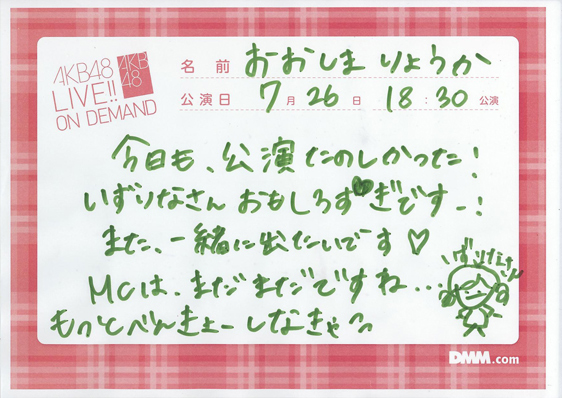 AKB48
LIVE!!
ON DEMAND
AKB
48
名前 おおしま りょうか
公演日 7月26日 18:30公演
今日も、公演たのしかった!
いずりなさん おもしろすぎですー!
また、一緒に出たいです♡
MCは、まだまだですね...
いずりなさん
もっとべんきょーしなきゃ
DMM.com